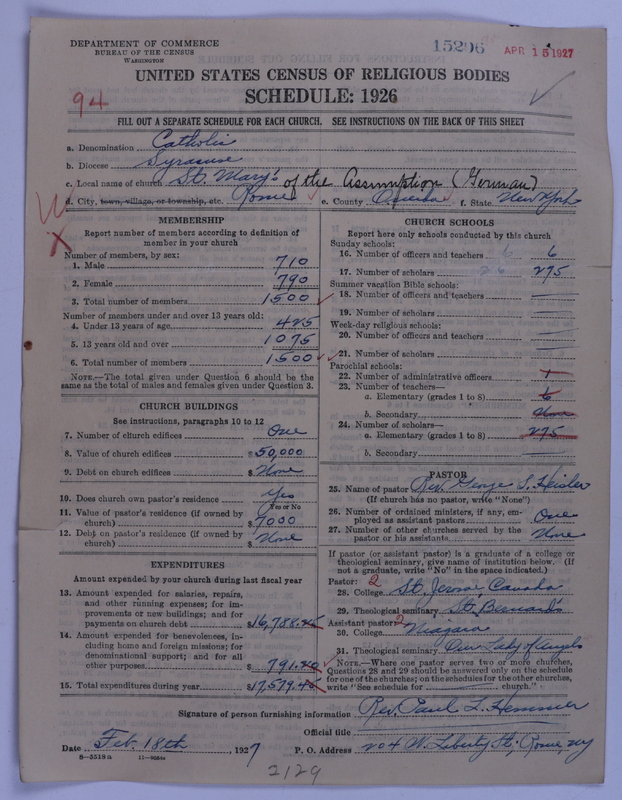 DEPARTMENT OF COMMERCE
BUREAU OF THE CENSUS
WASHINGTON
15296
APR 15 1927
UNITED STATES CENSUS OF RELIGIOUS BODIES
SCHEDULE: 1926
94
FILL OUT A SEPARATE SCHEDULE FOR EACH CHURCH. SEE INSTRUCTIONS ON THE BACK OF THIS SHEET
a. Denomination Catholic
b. Diocese Syracuse
c. Local name of church St. Mary's of the Assumption (German)
d. City, town, village, or township, etc. Rome e. County Oneida f. State New York
MEMBERSHIP
Report number of members according to definition of
member in your church
Number of members, by sex:
1. Male 710
2. Female 790
3. Total number of members 1500
Number of members under and over 13 years old:
4. Under 13 years of age 425
5. 13 years old and over 1075
6. Total number of members 1500
NOTE.—The total given under Question 6 should be the
same as the total of males and females given under Question 3.
CHURCH BUILDINGS
See instructions, paragraphs 10 to 12
7. Number of church edifices One
8. Value of church edifices $50,000
9. Debt on church edifices $None
10. Does church own pastor's residence Yes
Yes or No
11. Value of pastor's residence (if owned by
church) $7000
12. Debt on pastor's residence (if owned by
church) $None
EXPENDITURES
Amount expended by your church during last fiscal year
13. Amount expended for salaries, repairs,
and other running expenses; for im-
provements or new buildings; and for
payments on church debt $16,788.
14. Amount expended for benevolences, in-
cluding home and foreign missions; for
denominational support; and for all
other purposes $791.
15. Total expenditures during year $17,579.
CHURCH SCHOOLS
Report here only schools conducted by this church
Sunday schools:
16. Number of officers and teachers 6 6
17. Number of scholars 275
Summer vacation Bible schools:
18. Number of officers and teachers
19. Number of scholars
Week-day religious schools:
20. Number of officers and teachers
21. Number of scholars
Parochial schools:
22. Number of administrative officers 1
23. Number of teachers—
a. Elementary (grades 1 to 8) 6
b. Secondary None
24. Number of scholars—
a. Elementary (grades 1 to 8) 275
b. Secondary
PASTOR
25. Name of pastor Rev. George S.
(If church has no pastor, write "None")
26. Number of ordained ministers, if any, em-
ployed as assistant pastors One
27. Number of other churches served by the
pastor or his assistants None
If pastor (or assistant pastor) is a graduate of a college or
theological seminary, give name of institution below. (If
not a graduate, write "No" in the space indicated.)
Pastor: 2
28. College St. Canada
29. Theological seminary St. Bernard's
Assistant pastor: 2
30. College Niagara
31. Theological seminary Our Lady of Angels
NOTE.—Where one pastor serves two or more churches,
Questions 28 and 29 should be answered only on the schedule
for one of the churches; on the schedules for the other churches,
write "See schedule for church."
Signature of person furnishing information Rev. Paul L. Hemmer
Official title
Date Feb. 18th, 1927 P. O. Address 204 W. Liberty St., Rome, NY
8—5518a 11—
2129